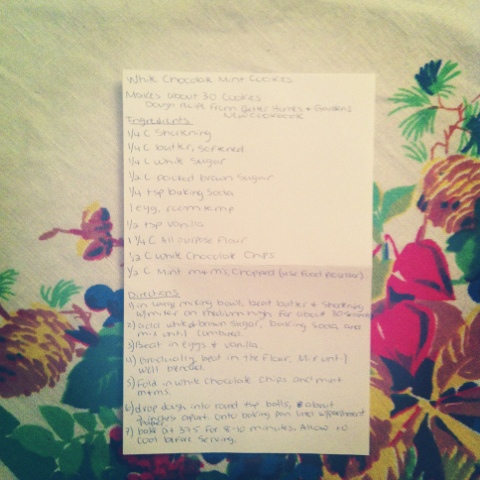 White Chocolate Mint Cookies
Makes about 30 Cookies
Dough recipe from Better Homes & Gardens
New Cookbook
Ingredients
1/4 C Shortening
1/4 C butter, softened
1/4 C White Sugar
1/2 C packed brown Sugar
1/4 tsp baking Soda
1 egg, room temp
1/2 tsp Vanilla
1 1/4 C All purpose Flour
1/2 C White Chocolate Chips
1/2 C Mint m&ms, Chopped (use food processor)
Directions
1) in large mixing bowl, beat butter & Shortening
w/mixer on medium high for about 30 seconds
2) add white & brown Sugar, baking Soda, and
mix until combined.
3) Beat in eggs & vanilla.
4) Gradually beat in the flour. Mix until
well blended.
5) Fold in white chocolate Chips and mint
m&ms.
6) drop dough into round tsp balls, about
2 inches apart onto baking pan lined w/parchment
paper
7) bake at 375 for 8-10 minutes. Allow to
cool before serving.